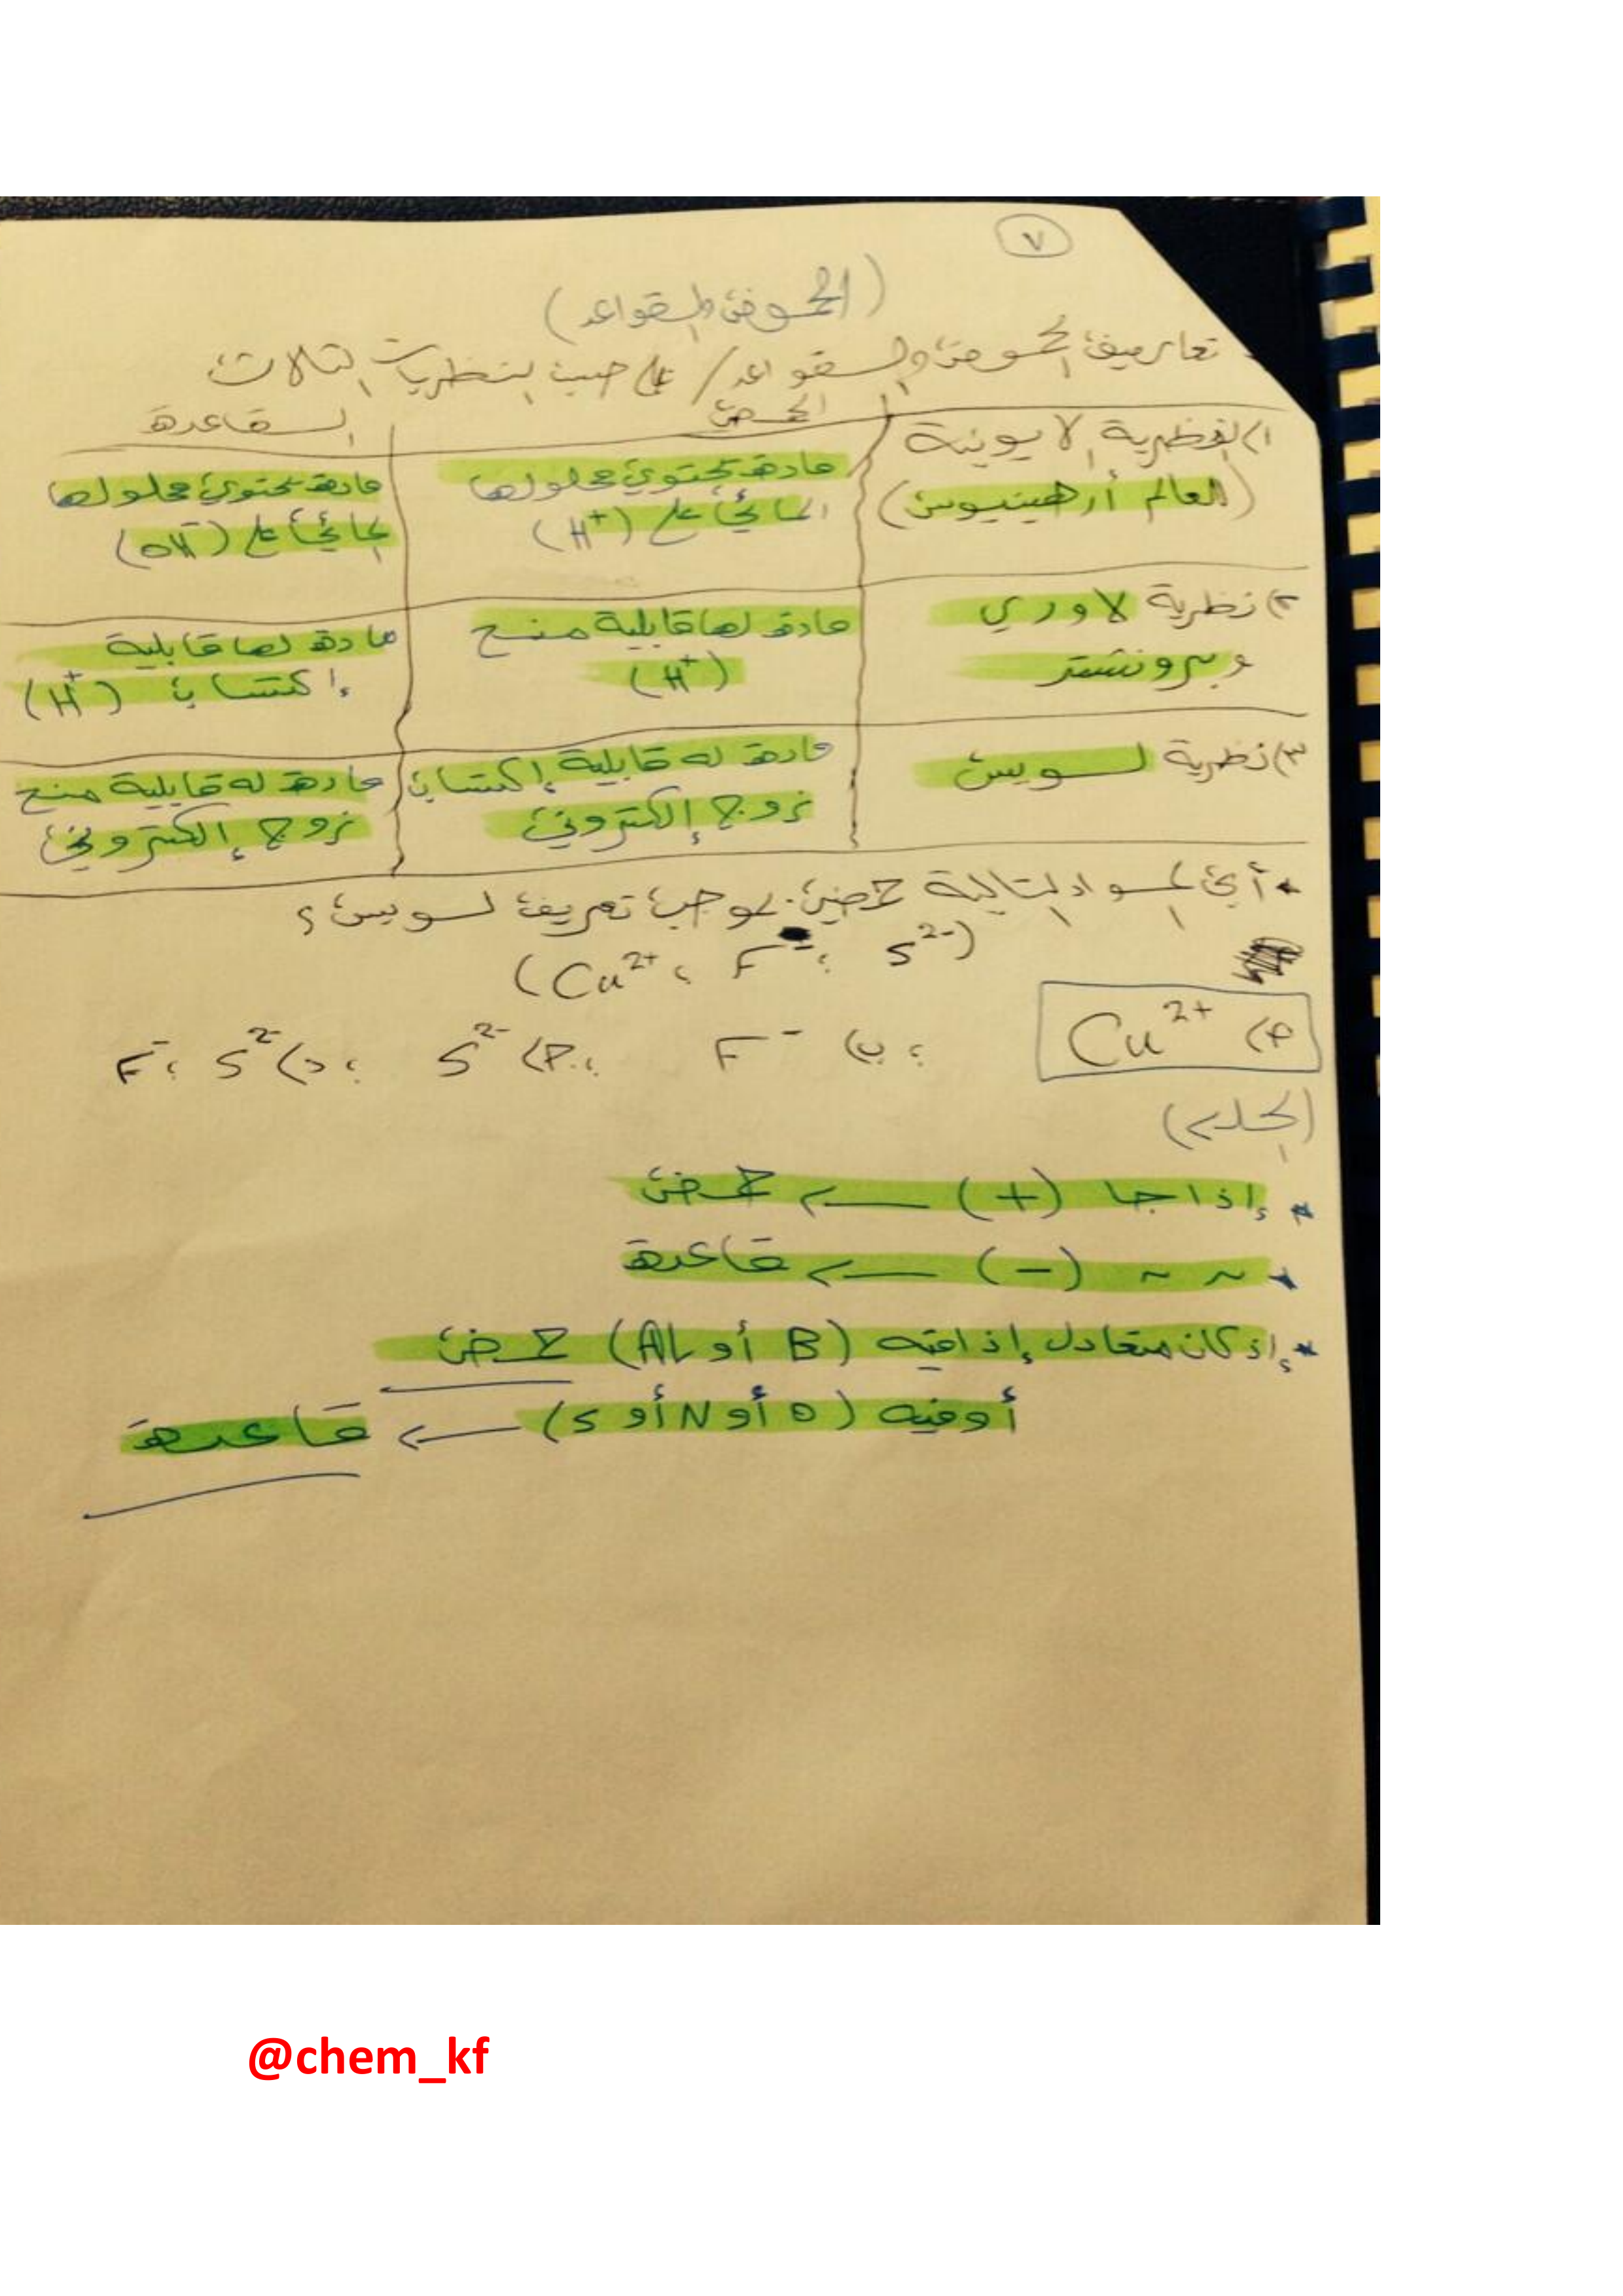 ٧
(الحموض والقواعد)
تعاريف الحموض والقواعد / على حسب النظريات الثلاث
الحمض
القاعدة
١) النظرية الايونية
(العالم أرهينيوس)
مادة تحتوي محلولها
المائي على (H⁺)
مادة تحتوي محلولها
المائي على (OH⁻)
٢) نظرية لاوري
وبرونشتد
مادة لها قابلية منح
(H⁺)
مادة لها قابلية
إكتساب (H⁺)
٣) نظرية لويس
مادة له قابلية إكتساب
زوج إلكتروني
مادة له قابلية منح
زوج إلكتروني
* أي المواد التالية حمض بموجب تعريف لويس؟
(Cu²⁺ ، F⁻ ، S²⁻)
أ) Cu²⁺ ؛ ب) F⁻ ؛ ج) S²⁻ ؛ د) S²⁻ ، F⁻
(الحل)
* إذا جا (+) ← حمض
* ~ ~ (-) ← قاعدة
* إذ كان متعادل إذا فيه (B أو AL) حمض
أو فيه (O أو N أو S) ← قاعدة
@chem_kf